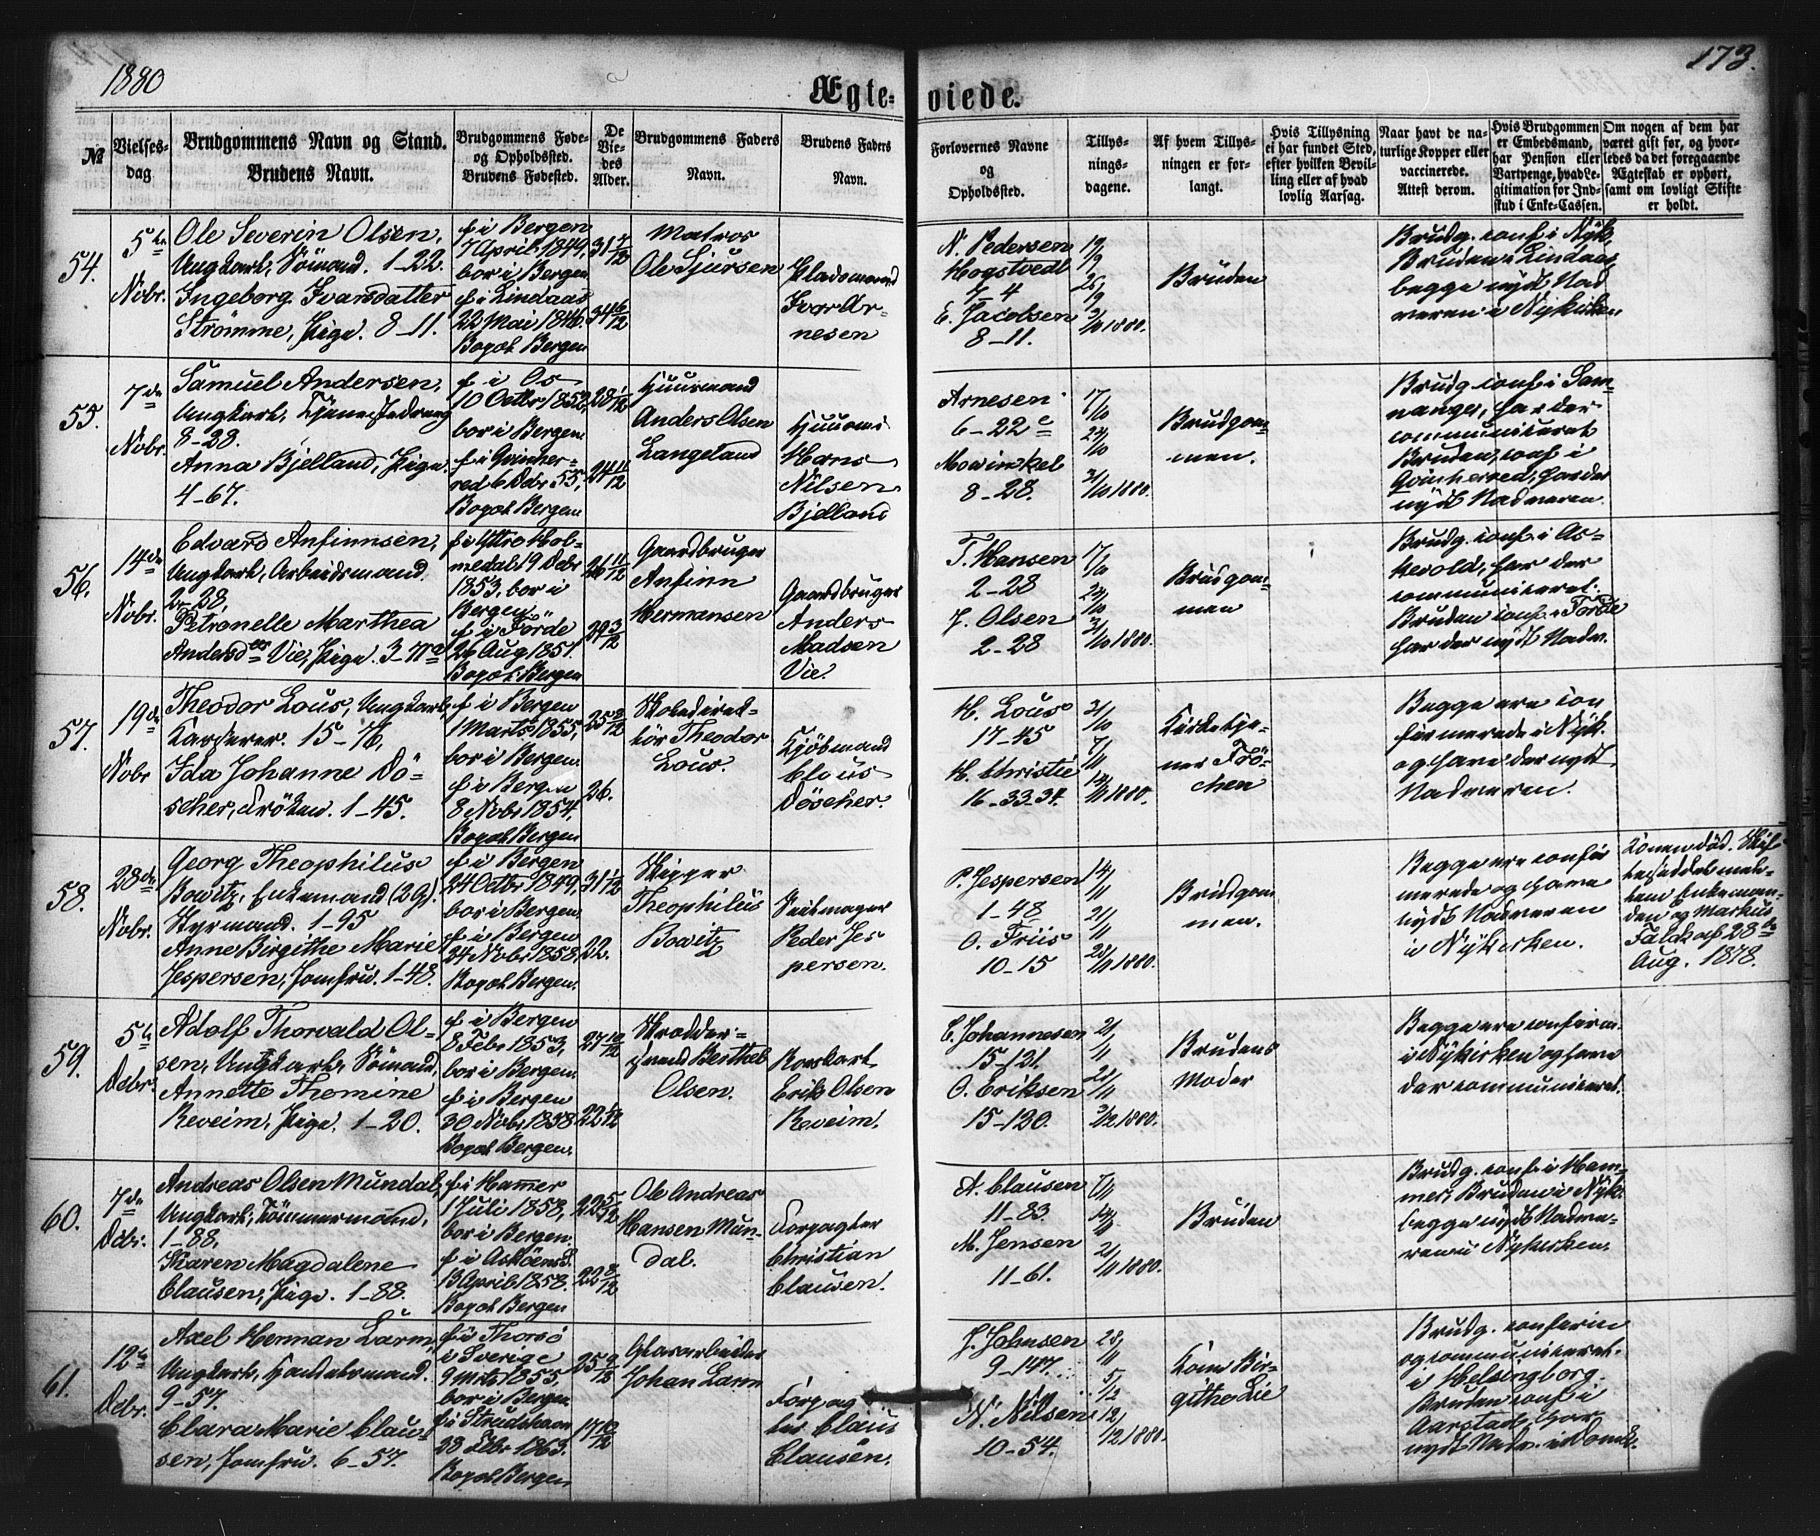 1880
Ægte-viede.
173.
№
Vielses-dag
Brudgommens Navn og Stand.
Brudens Navn.
Brudgommens Føde- og Opholdssted.
Brudens Fødested.
De Viedes Alder.
Brudgommens Faders Navn.
Brudens Faders Navn.
Forlovernes Navne og Opholdssted.
Tillysningsdagene.
Af hvem Tillysningen er forlangt.
Hvis Tillysning ei har fundet Sted, efter hvilken Bevilling eller af hvad lovlig Aarsag.
Naar havt de naturlige Kopper eller vaccinerede. Attest derom.
Hvis Brudgommen er Embedsmand, har Pension eller Vartpenge, hvad Legitimation for Indskud i Enke-Cassen.
Om nogen af dem har været gift før, og hvorledes da det foregaaende Ægteskab er ophørt, samt om lovligt Skifte er holdt.
54.
5te Nobr.
Ole Severin Olsen,
Ungkarl, Sömand. 1-22.
Ingeborg Ivarsdatter
Strømme, Pige. 8-11.
f i Bergen
7 April 1849,
bor i Bergen
f i Lindaas
22 Mai 1846.
Bopæl Bergen
31 7/12
34 6/12
Matros
Ole Sjursen
Gladsmand
Ivar Arnesen
N. Pedersen
Hogstvedt
7-4
E. Jacobsen
8-11.
19/9
26/9
3/10 1880.
Bruden
Brudg. conf i Nÿk,
Bruden i Lindaas
begge nydt Nad
veren i Nykirken
55.
7de Nobr.
Samuel Andersen,
Ungkarl, Tjenestedreng
8-28.
Anna Bjelland, Pige.
4-67.
f i Os
10 Octbr 1852,
bor i Bergen
f i Qvinher-
red 6 Debr 55,
Bopæl Bergen
28 1/12
24 11/12
Huusmand
Anders Olsen
Langeland
Huusm.
Hans
Nilsen
Bjelland
Arnesen
6-22c
Mowinkel
8-28.
17/10
24/10
31/10 1880.
Brudgom-
men.
Brudg. conf i Sam-
nanger, har der
communiceret
Bruden, conf i
Qvinherred, har der
nydt Nadveren.
56.
14de Nobr.
Edvard Anfinnsen,
Ungkarl, Arbeidsmand.
2-28,
Petronelle Marthea
Andersd. Vie, Pige. 3-71a
f i Yttre Hol-
medal 19 Debr
1853, bor i
Bergen
f i Förde
26 Aug 1851.
Bopæl Bergen
26 11/12
29 3/12
Gaardbruger
Anfinn
Hermansen
Gaardbruger
Anders
Madsen
Vie.
T. Hansen
2-28
J. Olsen
2-28
17/10
24/10
31/10 1880.
Brudgom-
men
Brudg. conf i As-
kevold, har der
communiceret.
Bruden conf i Förde
har der nydt Nadv.
57.
19de Nobr
Theodor Lous, Ungkarl,
Kasserer. 15-76,
Ida Johanne Dö-
scher, Fröken. 1-45.
f i Bergen
1 Marts 1855,
bor i Bergen.
f i Bergen
8 Nobr 1854.
Bopæl Bergen
25 8/12
26.
Skoledirek-
tör Theodor
Lous.
Kjöbmand
Claus
Döscher.
H. Lous
17-45
H. Christie
16-33.34.
31/10
7/11
14/11 1880.
Kirketje-
ner Frö-
chen
Begge ere con
firmerede i Nÿk.
og have der nydt
Nadveren.
58.
28de Nobr.
Georg Theophilus
Bowitz, Enkemand (2 G).
Styrmand. 1-95
Anne Birgithe Marie
Jespersen, Jomfru. 1-48.
f i Bergen
24 Octbr 1849,
bor i Bergen.
f i Bergen
24 Nobr 1858,
Bopæl Bergen.
31 1/12
22.
Skipper
Theophilus
Bowitz
Seilmager
Peder Jes
persen.
P. Jespersen
1-48
O. Friis
10-15
14/11
21/11
28/11 1880.
Brudgom
men.
Begge ere confir
merede og have
nydt Nadveren
i Nykirken.
Konen död. Skif-
teseddel med-
delt Enkeman-
den og Markus
Falck af 28de
Aug. 1878.
59.
5te Debr.
Adolf Thorvald Ol-
sen, Ungkarl, Sömand,
Annette Thomine
Reveim, Pige. 1-20.
f i Bergen
8 Febr 1853,
bor i Bergen.
f i Bergen
30 Nobr 1858
Bopæl Bergen.
27 10/12
22 1/12
Skrædder-
svend Berthel
Olsen.
Roerskarl
Erik Olsen
Reveim.
C. Johannesen
15-121.
O. Eriksen
15-120.
21/11
28/11
5/12 1880.
Brudens
Moder
Begge ere confirm.
i Nykirken og have
der communiceret.
60.
7de Debr.
Andreas Olsen Mundal,
Ungkarl, Tömmermand,
1-88,
Karen Magdalene
Clausen, Pige. 1-88.
f i Hammer
1 Juli 1858,
bor i Bergen.
f i Asköens S.
13 April 1858.
Bopæl Bergen
22 5/12
22 8/12
Ole Andreas
Hansen Mun-
dal.
Forpagter
Christian
Clausen.
A. Clausen
11-83.
M. Jensen
11-61.
7/11
14/11
21/11 1880.
Bruden
Brudg. conf i Ham-
mer, Bruden i Nÿk.
begge nydt Nadve-
ren i Nykirken.
61.
12te Debr.
Axel Herman Larm,
Ungkarl, Handelsmand.
9-57.
Clara Marie Clau-
sen, Jomfru. 6-57.
f i Thorsö
i Sverige
9 Mrts 1855.
bor i Bergen
f i Strudshavn
28 Febr 1863.
Bopæl Bergen
25 9/12
17 10/12
Glasarbeider
Johan Larm
Forpag
ter Claus
Clausen.
J. Johnsen
9-147.
N. Nilsen
10-54.
28/11
5/12
12/12 1880.
Kone Bir-
githe Lie
Brudg. confirm
og communiceret.
i Helsingborg.
Bruden conf i
Aarstad, har
nydt Nadv. i Domk.